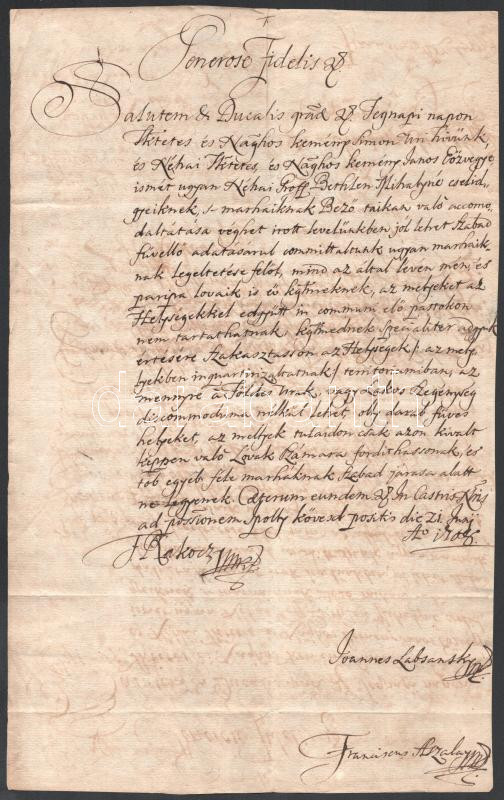 Generose Fidelis
Salutem & Ducalis
Tegnapi napon
és Nághos kemény Simon Uri hivünk,
és Néhai és Nághos kemény Janos Eözvegye
ismét ugyan Néhai Groff Bethlen Mihályné cseléd
gyeiknek, s marháiknak való accomo
daltatása véghet irott levelünkben jól lehet Szabad
füvellő adatásárul committaltunk ugyan marháik
nak legeltetése felől, mind az által leven mén, és
paripa lovaik is eő kglmeknek, az mellyeket az
Helységekkel edgyütt in communi elő pástokon
nem tartathatnak kglmednek specialiter adgyuk
értésére Szakasztasson az Helységek / az mely
lyekben inquártirizáltatnak / territoriumiban, az
mennyire a Földes Urak, vagy Lakos Szegénység
discommoduma nélkül lehet, oly darab füves
helyeket, az mellyek tulaidon csak azon kivált
képpen való Lovak Számára fordithassonak, és
töb egyéb féle marháknak Szabad járása alatt
ne legyenek. Cæterum eundem In Castris Nris
ad possionem positis die 21. Maj
Ao 1706
F Rakoczi
Joannes Labsansky
Franciscus Aszalay